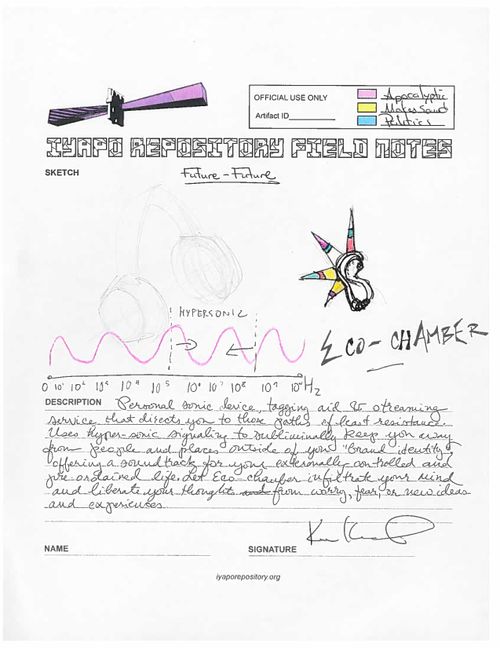 OFFICIAL USE ONLY
Apocalyptic
Makes Sound
Artifact ID
Politics
IYAPO REPOSITORY FIELD NOTES
SKETCH
Future-Future
HYPERSONIC
ECO-CHAMBER
0 10¹ 10² 10³ 10⁴ 10⁵ 10⁶ 10⁷ 10⁸ 10⁹ 10¹⁰ Hz
DESCRIPTION Personal sonic device, tagging aid & streaming
service that directs you to those paths of least resistance.
Uses hyper-sonic signaling to subliminally keep you away
from people and places outside of your "Brand identity",
offering a soundtrack for your externally controlled and
pre-ordained life. Let Eco chamber infiltrate your mind
and liberate your thought from worry, fear, or new ideas
and experiences.
NAME
SIGNATURE
iyaporepository.org